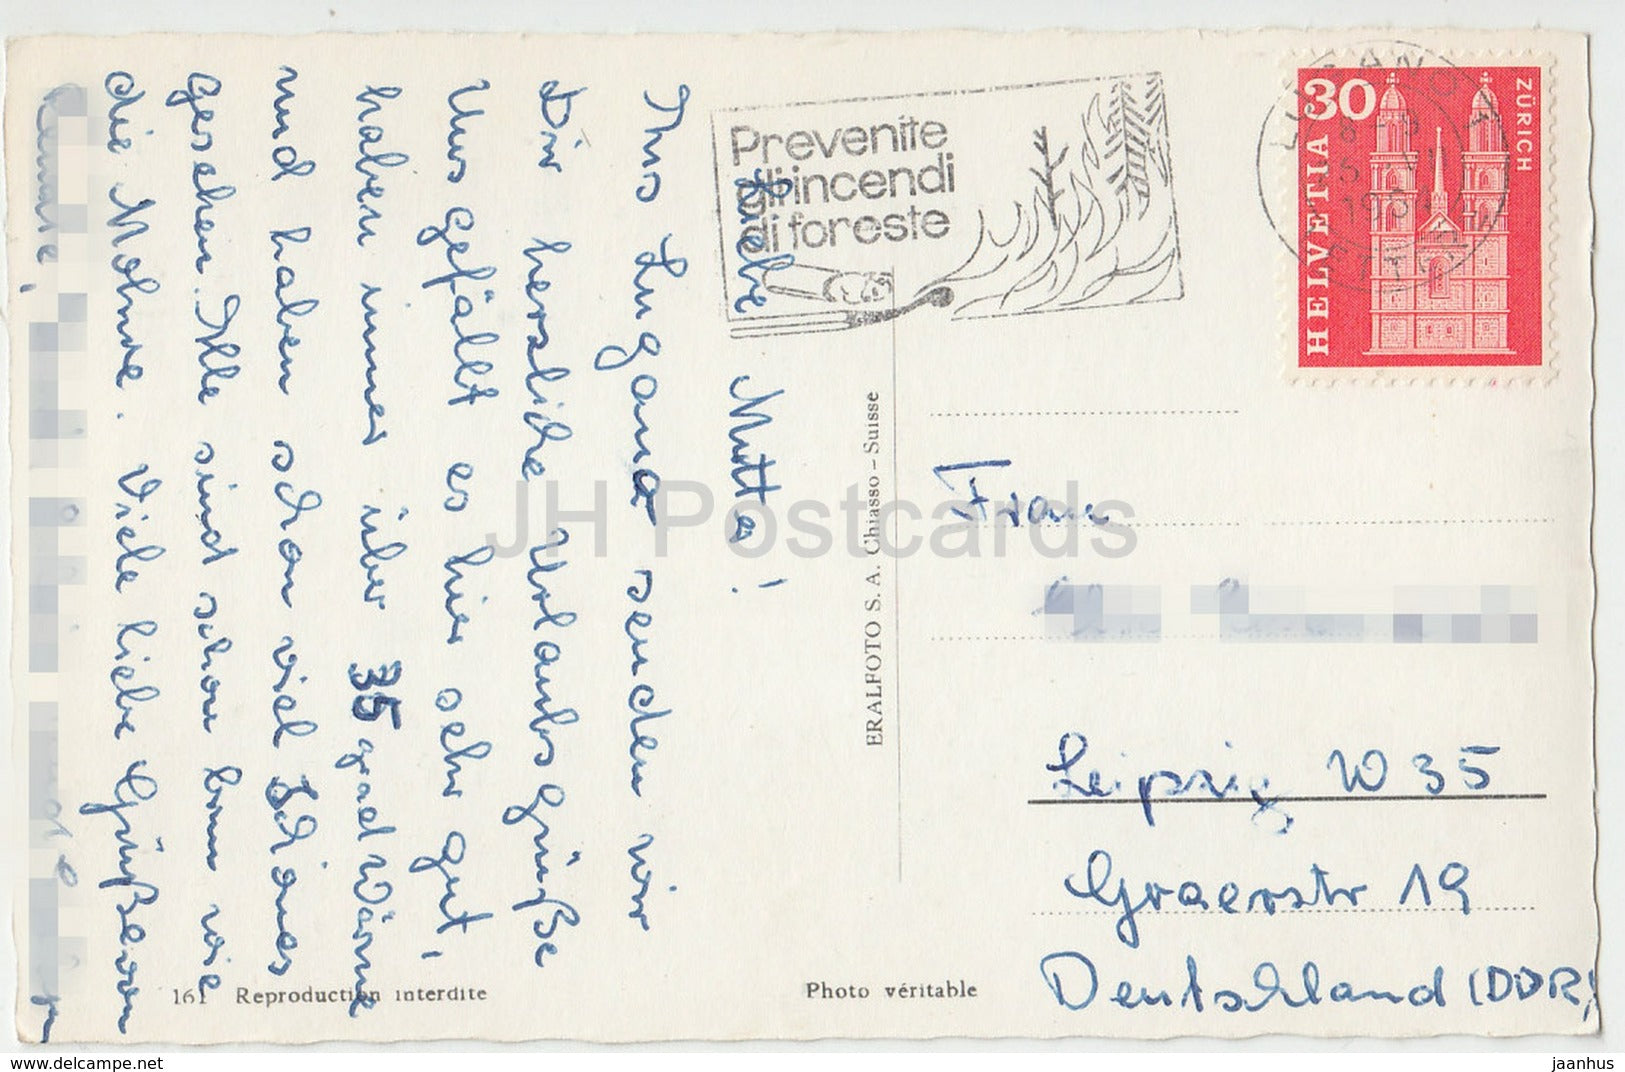 Liebe Mutta!
Aus Lugano senden wir
Dir herzliche Urlaubsgrüße
Uns gefällt es hier sehr gut,
haben immer über 35 grad Wärme
und haben schon viel Schönes
gesehen. Alle sind schon braun wie
die Mohre. Viele liebe Grüße von
Renate,
Prevenite
gli incendi
di foreste
LUGANO 1
HELVETIA
30
ZÜRICH
ERALFOTO S. A. Chiasso – Suisse
Frau
Leipzig W 35
Graerstr 19
Deutschland (DDR)
161 Reproduction interdite
Photo véritable
JH Postcards
www.delcampe.net
jaanhus